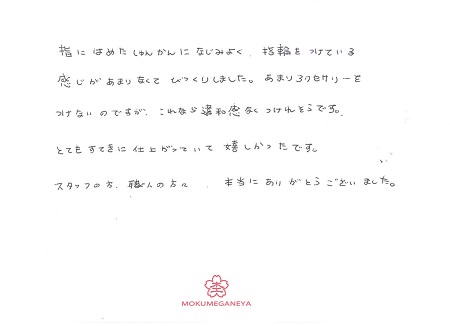 指に はめた しゅんかんに なじみよく、指輪を つけている
感じが あまりなくて びっくりしました。あまり アクセサリーを
つけないのですが、これなら 違和感なく つけれそうです。
とても すてきに 仕上がっていて 嬉しかったです。
スタッフの方、職人の方々、本当に ありがとうございました。
MOKUMEGANEYA